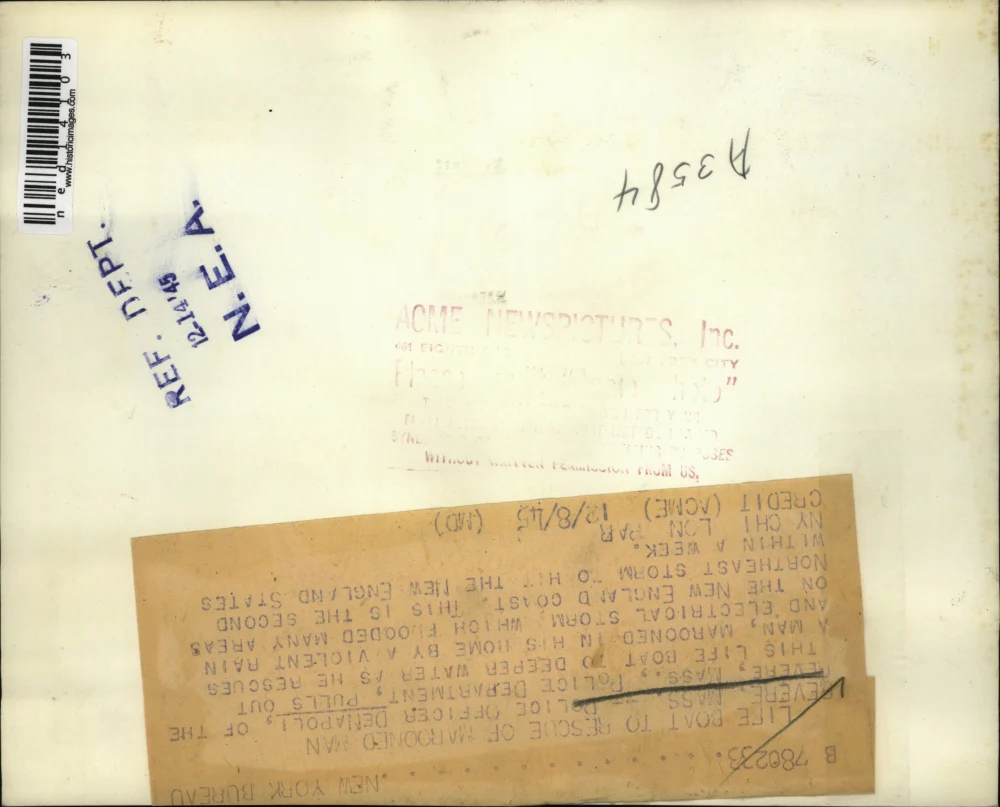 ned14103
www.historicimages.com
A3584
REF. DEPT.
12.14'45
N.E.A.
ACME NEWSPICTURES, Inc.
461 CITY
WITHOUT WRITTEN PERMISSION FROM US.
B 780233 . . . . . . . . . . NEW YORK BUREAU
LIFE BOAT TO RESCUE OF MAROONED MAN
REVERE, MASS. POLICE OFFICER DEMAPOLI, OF THE
REVERE, MASS., POLICE DEPARTMENT, PULLS OUT
THIS LIFE BOAT TO DEEPER WATER AS HE RESCUES
A MAN, MAROONED IN HIS HOME BY A VIOLENT RAIN
AND ELECTRICAL STORM, WHICH FLOODED MANY AREAS
ON THE NEW ENGLAND COAST. THIS IS THE SECOND
NORTHEAST STORM TO HIT THE NEW ENGLAND STATES
WITHIN A WEEK.
NY CHI LON PAR
CREDIT (ACME) 12/8/45 (MD)